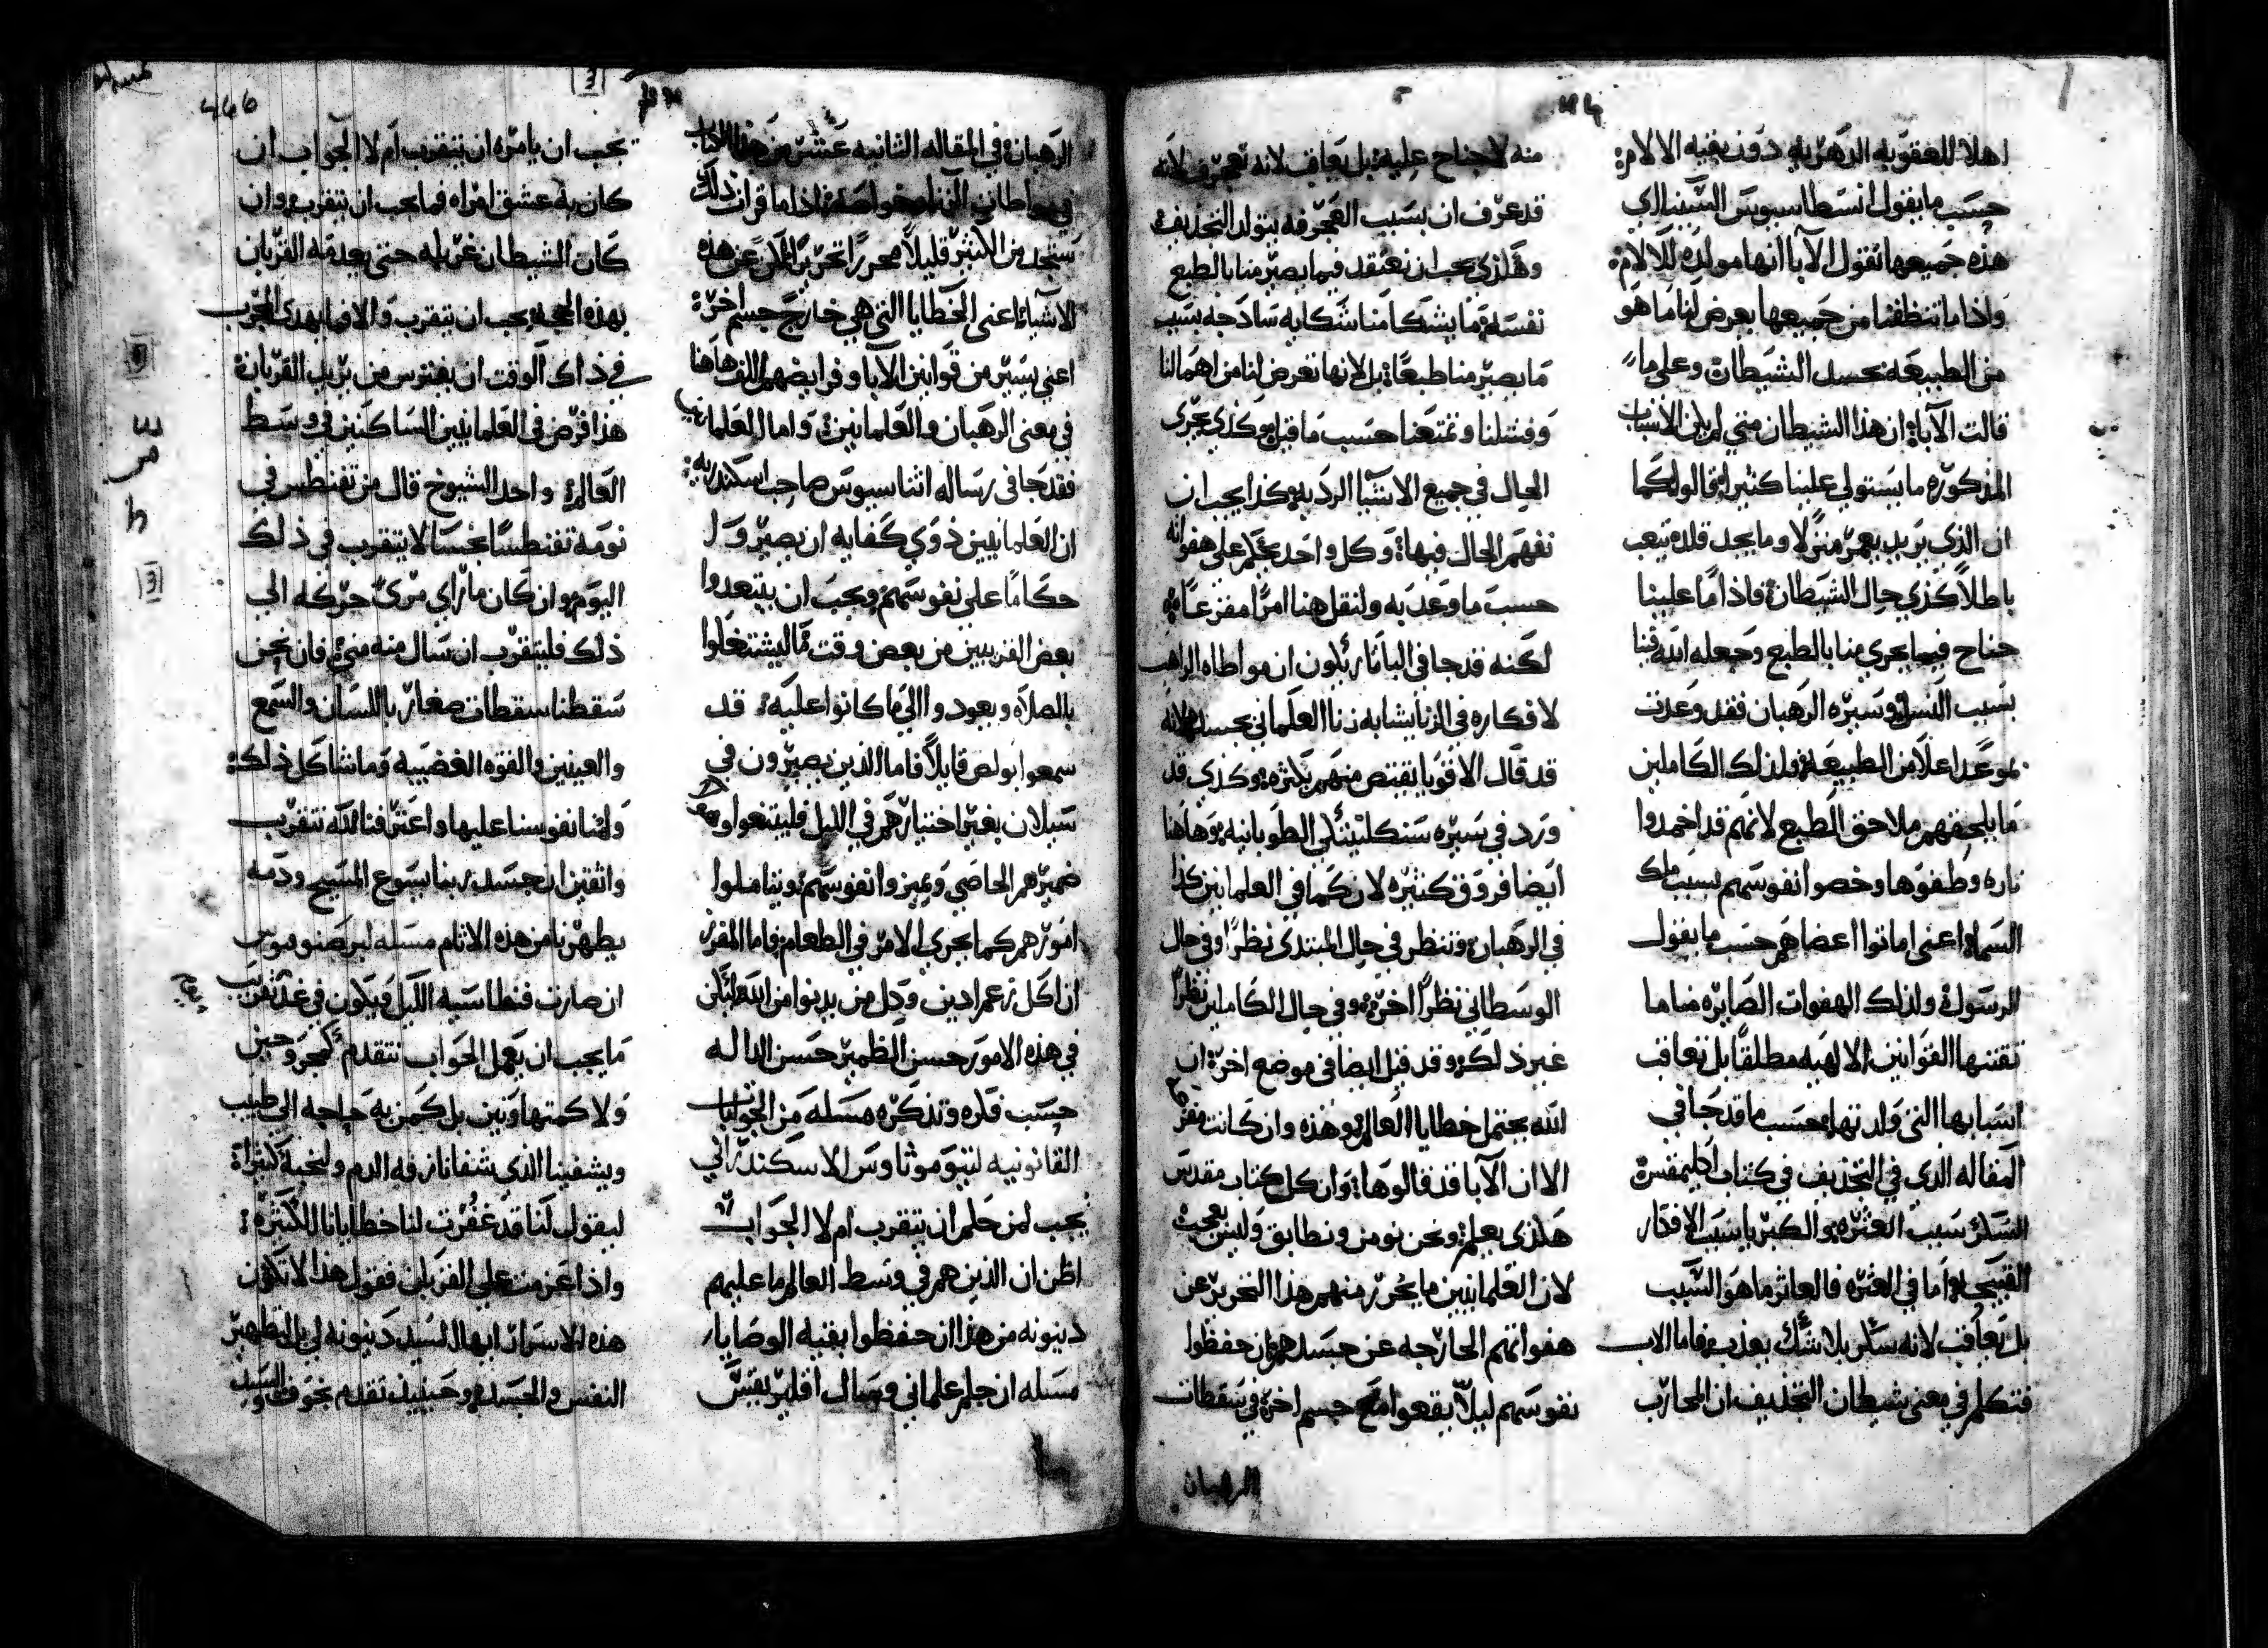 اهلا للعقوبه الدهريه دون بقيه الالام:
حسب ما يقول انسطاسيوس السينااي
هذه جميعها تقول الآبا انها مولده للالام:
واذا ما تنظفنا من جميعها يعرض لنا ما هو
من الطبيعه بحسد الشيطان وعلى ما
قالت الآبا ان هذا الشيطان متي لم يلق الاسباب
المذكوره ما يستولي علينا كثيرا قالوا كما
ان الذي يريد يعمر منزلا وما يجد قلده يتعب
باطلاً كذي حال الشيطان فاذا ما علينا
جناح فيما يجري منا بالطبع وجعله الله فينا
بسبب النسل وسيره الرهبان فقد وعدت
بموعد اعلا من الطبيعه ولذلك الكاملين
ما يلحقهم ملاحق الطبع لانهم قد اخمدوا
ناره وطفوها وخصوا نفوسهم بسبب ملك
السما اعني اماتوا اعضاهم حسب ما يقول
الرسول ولذلك الهفوات الصايره مناما
تقننها القوانين الالهيه مطلقًا بل تعاقب
اسبابها التي ولدتها حسب ما قد جا في
المقاله الذي في التجذيف في كتاب اكليمقس
السكر بسبب العثره والكبريا بسبب الافكار
القبيحه اما في العثره فالعاثر ما هو السبب
بل يعاقب لانه سكر بلا شك يعذب فاما الاب
فتكلم في معنى شيطان التجديف ان المحارب
منه لا جناح عليه بل يعاقب لانه تعجرف لانه
قد عرف ان بسبب العجرفه يتولد التجذيف
وهكذي يجب ان نعتقد فيما يصير منا بالطبع
نفسه ما يشكا منا شكايه ساذجه بسبب
ما يصير منا طبعًا بل لانها تعرض لنا من اهمالنا
وفشلنا وتمتعنا حسب ما قيل وكذي يجري
الحال في جميع الاشيا الرديه كذا يجب ان
نفهم الحال فيها وكل واحد يحكم على هفواته
حسب ما وعد به ولنقل هنا امرًا مفزعًا
لكنه قد جا في الباتاريكون ان مواطاه الراهب
لافكاره في الزنا يشابه زنا العلماني بجسده لانه
قد قال الاقويا يقتص منهم بكثره وكذي قد
ورد في سيره سنكليتيكي الطوبانيه وهاهنا
ايضا فروق كثيره لان كما في العلمانيين كذا
في الرهبان وتنظر في حال المبتدى نظرًا وفي حال
الوسطاني نظرًا اخر وفي حال الكاملين نظرًا
غير ذلك وقد قيل ايضا في موضع اخر ان
الله يحتمل خطايا العالم وهذه وان كانت مفزعه
الا ان الآبا قد قالوها وان كل كتاب مقدس
هكذي يعلم ونحن نومن ونطابق وليس بعجب
لان العلمانيين ما يحرر منهم هذا التحرير عن
هفواتهم الخارجه عن جسدهم ان حفظوا
نفوسهم ليلاّ يقعوا مع جسم اخر في سقطات
الرهبان
الرهبان في المقاله الثانيه عشر من هذا الكتاب
في مواطاتهم الزنا وخواصه اذا ما قرات ذلك
ستجد من الاكثر قليلاً محررًا تحريرًا لكن عن هذه
الاشيا اعني الخطايا التي هي خارج جسم اخر
اعني يسير من قوانين الآبا وفرايضهم اللذ هاهنا
في معنى الرهبان والعلمانيين واما العلمانيين
فقد جا في رساله اثناسيوس صاحب اسكندريه
ان العلمانيين ذوي كفايه ان يصيروا
حكامًا على نفوسهم ويجب ان يبتعدوا
بعض القريبين من بعض وقت ما ليشتغلوا
بالصلاه ويعودوا الي ما كانوا عليه قد
سمعوا بولص قايلاً فاما الذين يصيرون في
سيلان بغير اختيارهم في الليل فليتبعوا
ضميرهم الخاصي ويميزوا نفوسهم ويتاملوا
امورهم كما يجري الامر في الطعام فاما المفرز
ان اكل زعم ادين وكل من يدنوا من الله ليكن
في هذه الامور حسن الظمير حسن الداله
حسب قدره وتذكره مسله من الجوابات
القانونيه لتيموثاوس الاسكندراني
يجب لمن حلم ان يتقرب ام لا الجواب
اظن ان الذين هم في وسط العالم ما عليهم
دينونه من هذا ان حفظوا بقيه الوصايا
مسله ان حلم علماني وسال اقليريقس
يجب ان يامره ان يتقرب ام لا الجواب ان
كان به عشق امراه فما يجب ان يتقرب وان
كان الشيطان غربله حتى يعدمه القربان
بهذه الحجه يجب ان يتقرب والا فما يهدى المجرب
في ذاك الوقت ان يفترس من يريد القربان
هذا فرض في العلمانيين الساكنين في وسط
العالم واحد الشيوخ قال من تفنطس في
نومه تفنطسًا نجسا لا يتقرب في ذلك
اليوم وان كان ما راي مرئ حركه الي
ذلك فليتقرب ان سال منه مني فان نحن
سقطنا سقطات صغار باللسان والسمع
والعينين والقوه الغضبيه وما شاكل ذلك
ولمنا نفوسنا عليها واعترفنا لله نتقرب
واثقين ان جسد ربنا يسوع المسيح ودمه
يطهرنا من هذه الاثام مسله لبرصنوفيوس
ان صارت فنطاسيه الليل ويكون في غد تقريب
ما يجب ان يعمل الجواب نتقدم
ولا كمتهاونين بل كمن به حاجه الي طبيب
ويشفينا الذي شفا نازفه الدم ولنحبه كثيرا
ليقول لنا قد غفرت لنا خطايانا الكثيره
واذا عزمت علي القربان فقول هذا لا تكون
هذه الاسرار ايها السيد دينونه لي بل لتطهير
النفس والجسد وحينيذ تقدم بخوف
446